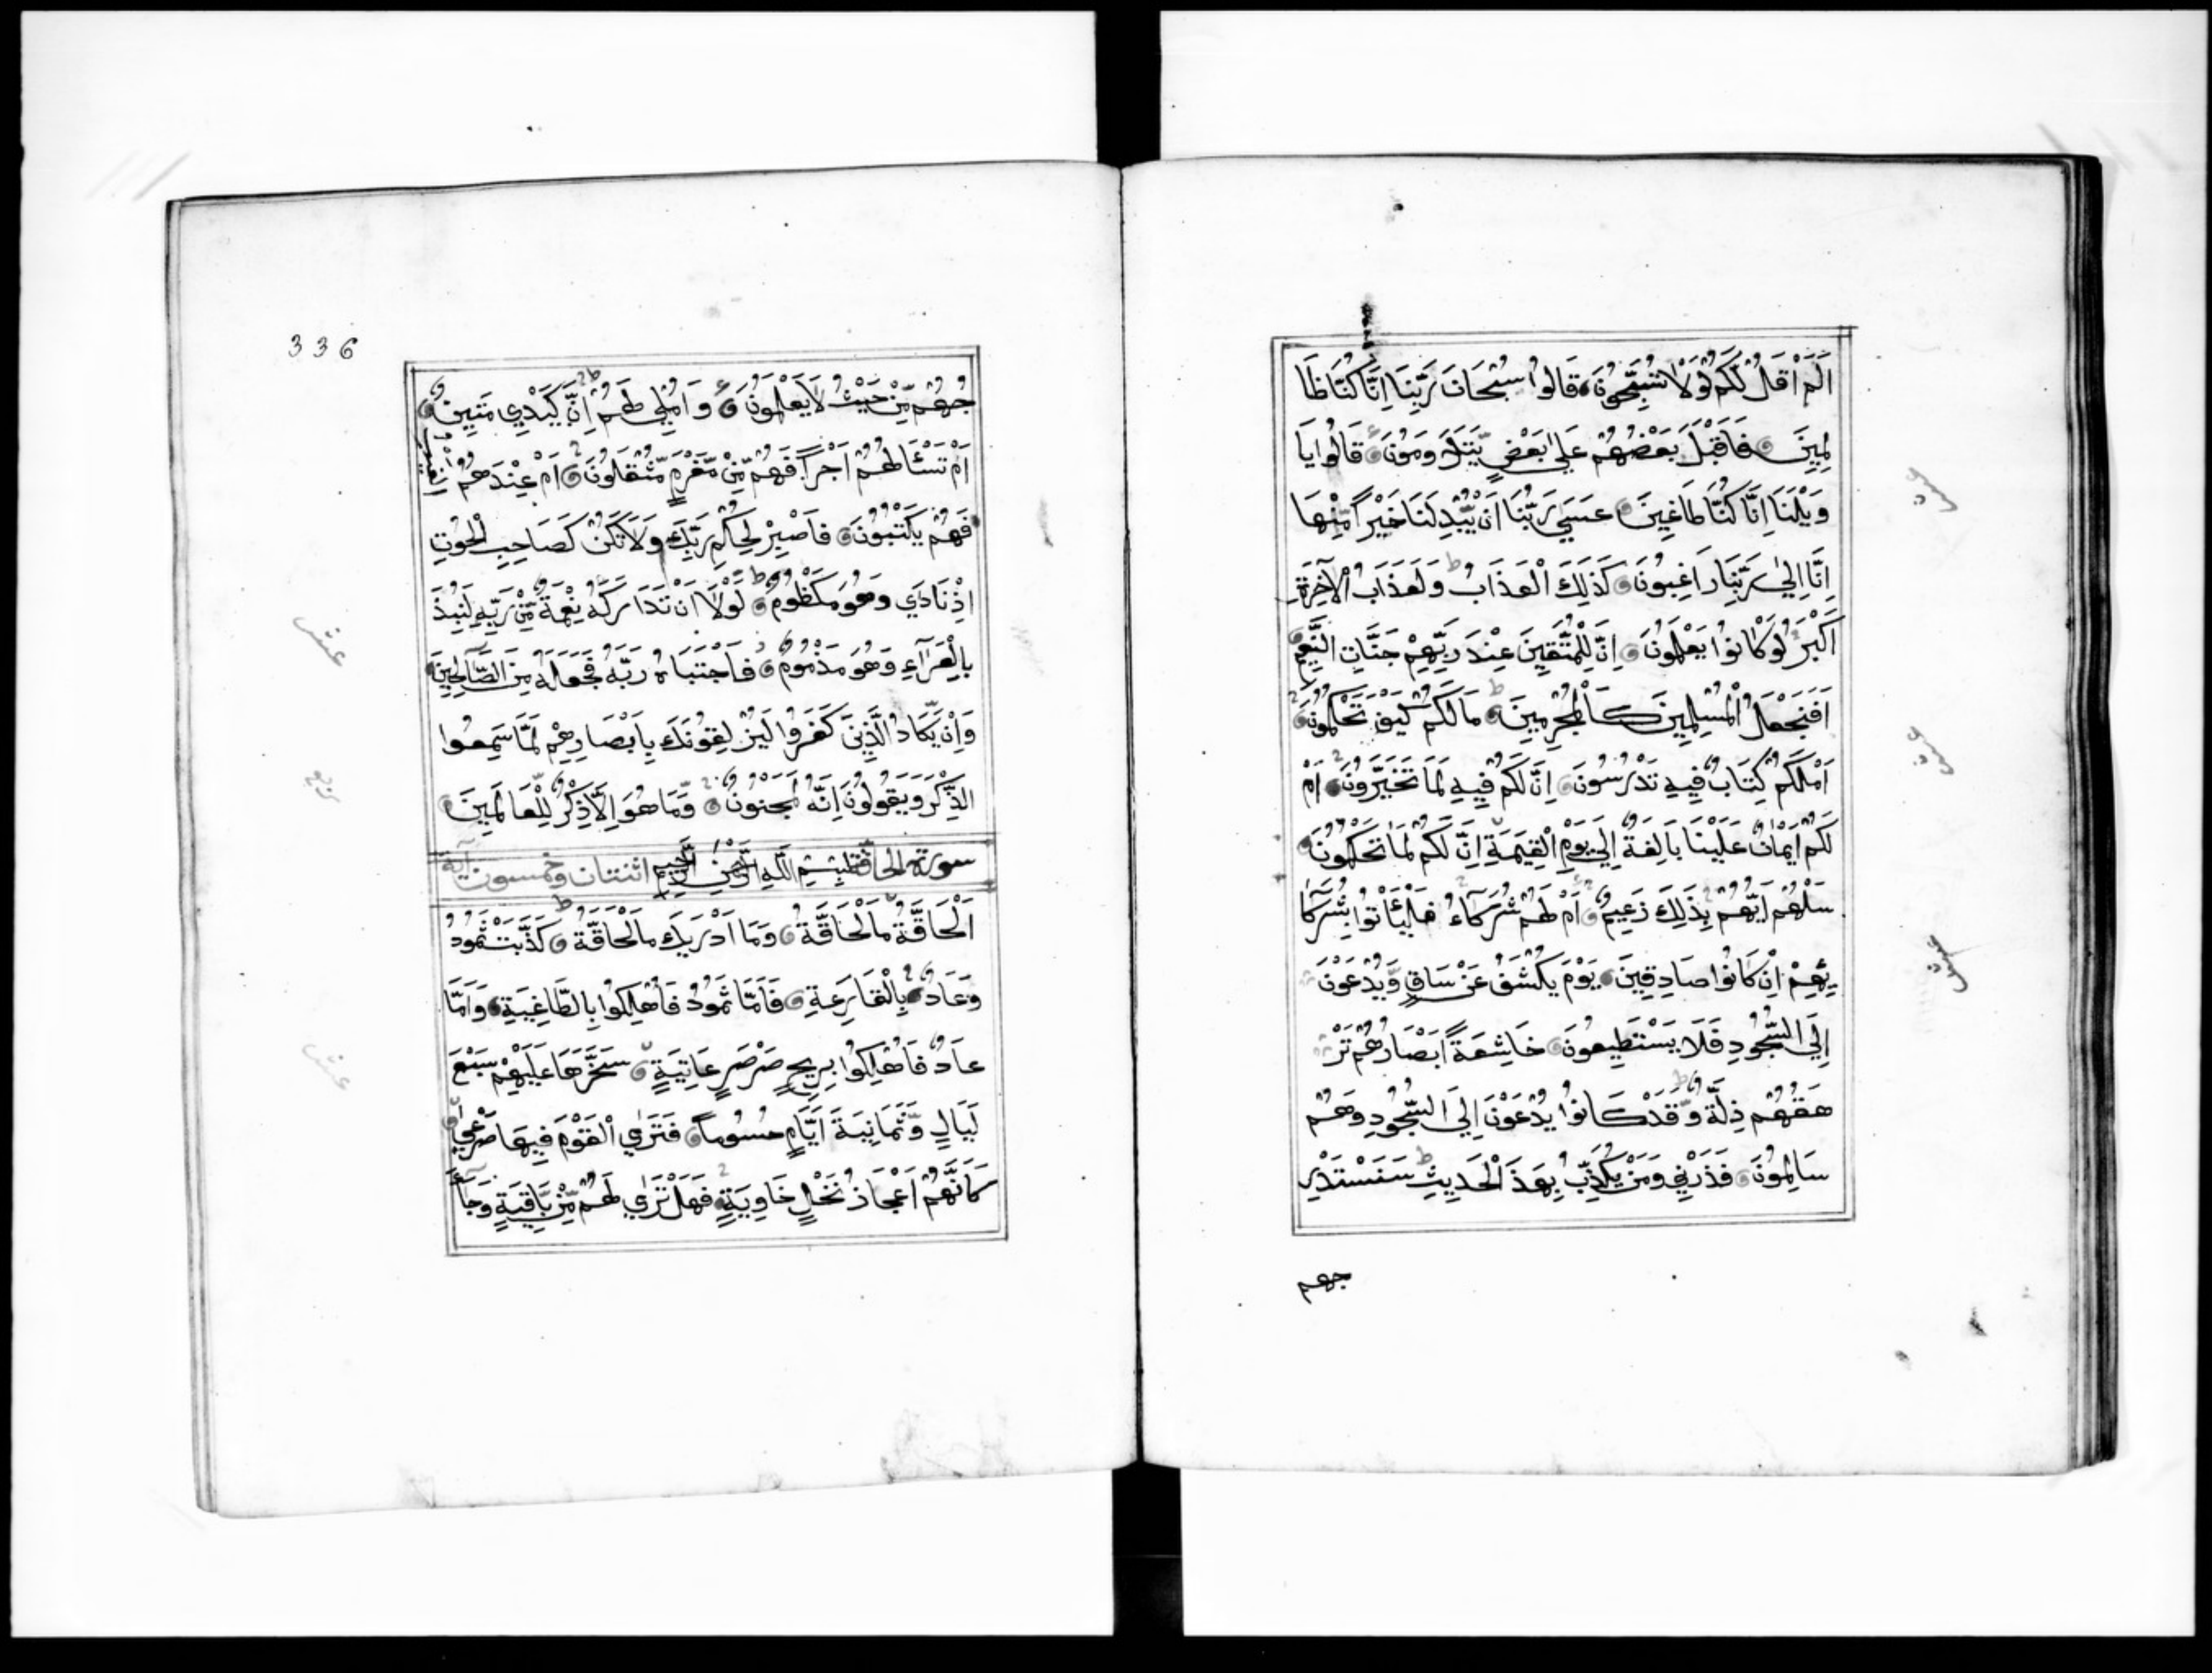 اَلَمْ اَقُلْ لَكُمْ لَوْلَا تُسَبِّحُونَ قَالُوا سُبْحَانَ رَبِّنَا اِنَّا كُنَّا ظَا
لِمِينَ فَاَقْبَلَ بَعْضُهُمْ عَلٰي بَعْضٍ يَّتَلَاوَمُونَ قَالُوا يَا
وَيْلَنَا اِنَّا كُنَّا طَاغِينَ عَسٰي رَبُّنَا اَنْ يُّبْدِلَنَا خَيْرًا مِّنْهَا
اِنَّا اِلٰي رَبِّنَا رَاغِبُونَ كَذٰلِكَ الْعَذَابُ وَلَعَذَابُ الْاٰخِرَةِ
اَكْبَرُ لَوْ كَانُوا يَعْلَمُونَ اِنَّ لِلْمُتَّقِينَ عِنْدَ رَبِّهِمْ جَنَّاتِ النَّعِيمِ
اَفَنَجْعَلُ الْمُسْلِمِينَ كَالْمُجْرِمِينَ مَالَكُمْ كَيْفَ تَحْكُمُونَ
اَمْ لَكُمْ كِتَابٌ فِيهِ تَدْرُسُونَ اِنَّ لَكُمْ فِيهِ لَمَا تَخَيَّرُونَ اَمْ
لَكُمْ اَيْمَانٌ عَلَيْنَا بَالِغَةٌ اِلَي يَوْمِ الْقِيٰمَةِ اِنَّ لَكُمْ لَمَا تَحْكُمُونَ
سَلْهُمْ اَيُّهُمْ بِذٰلِكَ زَعِيمٌ اَمْ لَهُمْ شُرَكَاءُ فَلْيَأْتُوا بِشُرَكَا
ئِهِمْ اِنْ كَانُوا صَادِقِينَ يَوْمَ يُكْشَفُ عَنْ سَاقٍ وَّيُدْعَوْنَ
اِلَي السُّجُودِ فَلَا يَسْتَطِيعُونَ خَاشِعَةً اَبْصَارُهُمْ تَرْ
هَقُهُمْ ذِلَّةٌ وَّقَدْ كَانُوا يُدْعَوْنَ اِلَي السُّجُودِ وَهُمْ
سَالِمُونَ فَذَرْنِي وَمَنْ يُّكَذِّبُ بِهٰذَا الْحَدِيثِ سَنَسْتَدْرِ
جهم
336
جُهُمْ مِّنْ حَيْثُ لَا يَعْلَمُونَ وَاُمْلِي لَهُمْ اِنَّ كَيْدِي مَتِينٌ
اَمْ تَسْئَالُهُمْ اَجْرًا فَهُمْ مِّنْ مَّغْرَمٍ مُّثْقَلُونَ اَمْ عِنْدَهُمُ الْغَيْبُ
فَهُمْ يَكْتُبُونَ فَاصْبِرْ لِحُكْمِ رَبِّكَ وَلَا تَكُنْ كَصَاحِبِ الْحُوتِ
اِذْ نَادٰي وَهُوَ مَكْظُومٌ لَوْلَا اَنْ تَدَارَكَهُ نِعْمَةٌ مِّنْ رَبِّهِ لَنُبِذَ
بِالْعَرَآءِ وَهُوَ مَذْمُومٌ فَاجْتَبَاهُ رَبُّهُ فَجَعَلَهُ مِنَ الصَّالِحِينَ
وَاِنْ يَّكَادُ الَّذِينَ كَفَرُوا لَيُزْلِقُونَكَ بِاَبْصَارِهِمْ لَمَّا سَمِعُوا
الذِّكْرَ وَيَقُولُونَ اِنَّهُ لَمَجْنُونٌ وَمَا هُوَ اِلَّا ذِكْرٌ لِّلْعَالَمِينَ
سورة الحاقة بِسْمِ اللّٰهِ الرَّحْمٰنِ الرَّحِيمِ اثنتان وخمسون آية
اَلْحَاقَّةُ مَا لْحَاقَّةُ وَمَا اَدْرٰيكَ مَا لْحَاقَّةُ كَذَّبَتْ ثَمُودُ
وَعَادٌ بِالْقَارِعَةِ فَاَمَّا ثَمُودُ فَاُهْلِكُوا بِالطَّاغِيَةِ وَاَمَّا
عَادٌ فَاُهْلِكُوا بِرِيحٍ صَرْصَرٍ عَاتِيَةٍ سَخَّرَهَا عَلَيْهِمْ سَبْعَ
لَيَالٍ وَّثَمَانِيَةَ اَيَّامٍ حُسُومًا فَتَرَي الْقَوْمَ فِيهَا صَرْعٰي
كَاَنَّهُمْ اَعْجَازُ نَخْلٍ خَاوِيَةٍ فَهَلْ تَرٰي لَهُمْ مِّنْ بَّاقِيَةٍ وَجَآءَ
عشر
ربع
عشر